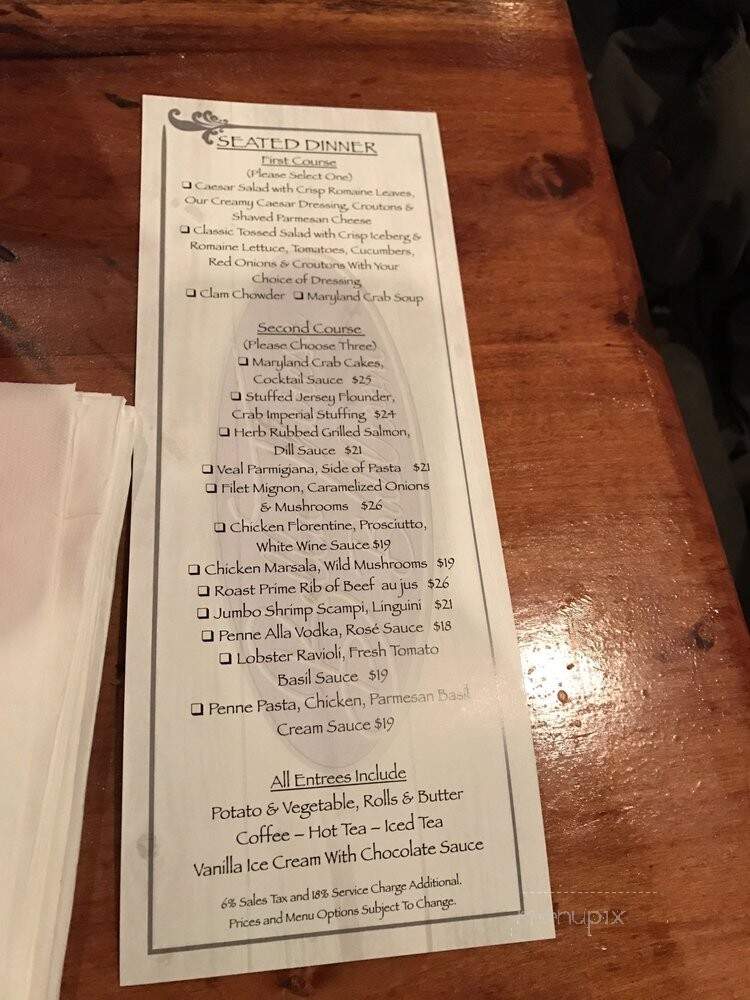 SEATED DINNER
First Course
(Please Select One)
❑ Caesar Salad with Crisp Romaine Leaves,
Our Creamy Caesar Dressing, Croutons &
Shaved Parmesan Cheese
❑ Classic Tossed Salad with Crisp Iceberg &
Romaine Lettuce, Tomatoes, Cucumbers,
Red Onions & Croutons With Your
Choice of Dressing
❑ Clam Chowder ❑ Maryland Crab Soup
Second Course
(Please Choose Three)
❑ Maryland Crab Cakes,
Cocktail Sauce $25
❑ Stuffed Jersey Flounder,
Crab Imperial Stuffing $24
❑ Herb Rubbed Grilled Salmon,
Dill Sauce $21
❑ Veal Parmigiana, Side of Pasta $21
❑ Filet Mignon, Caramelized Onions
& Mushrooms $26
❑ Chicken Florentine, Prosciutto,
White Wine Sauce $19
❑ Chicken Marsala, Wild Mushrooms $19
❑ Roast Prime Rib of Beef au jus $26
❑ Jumbo Shrimp Scampi, Linguini $21
❑ Penne Alla Vodka, Rosé Sauce $18
❑ Lobster Ravioli, Fresh Tomato
Basil Sauce $19
❑ Penne Pasta, Chicken, Parmesan Basil
Cream Sauce $19
All Entrees Include
Potato & Vegetable, Rolls & Butter
Coffee – Hot Tea – Iced Tea
Vanilla Ice Cream With Chocolate Sauce
6% Sales Tax and 18% Service Charge Additional.
Prices and Menu Options Subject To Change.
menupix